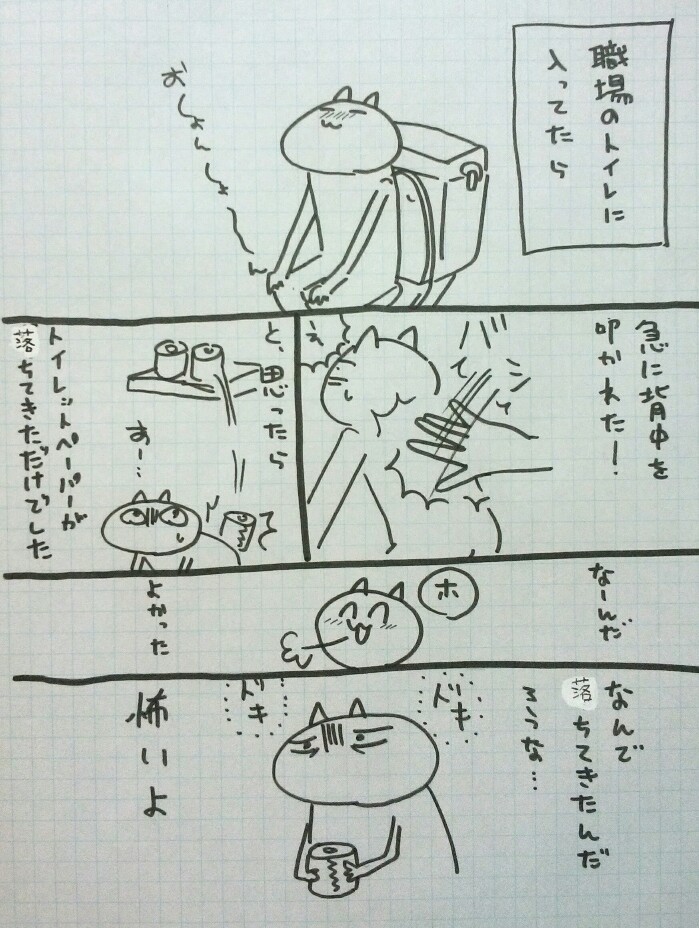 職場のトイレに
入ってたら
おしょんしょ〜
急に背中を
叩かれた！
バシィィ
え
と、思ったら
すー…
トイレットペーパーが
落ちてきただけでした
なーんだ
ホ
よかった
なんで
落ちてきたんだ
ろうな…
ドキ
ドキ
怖いよ